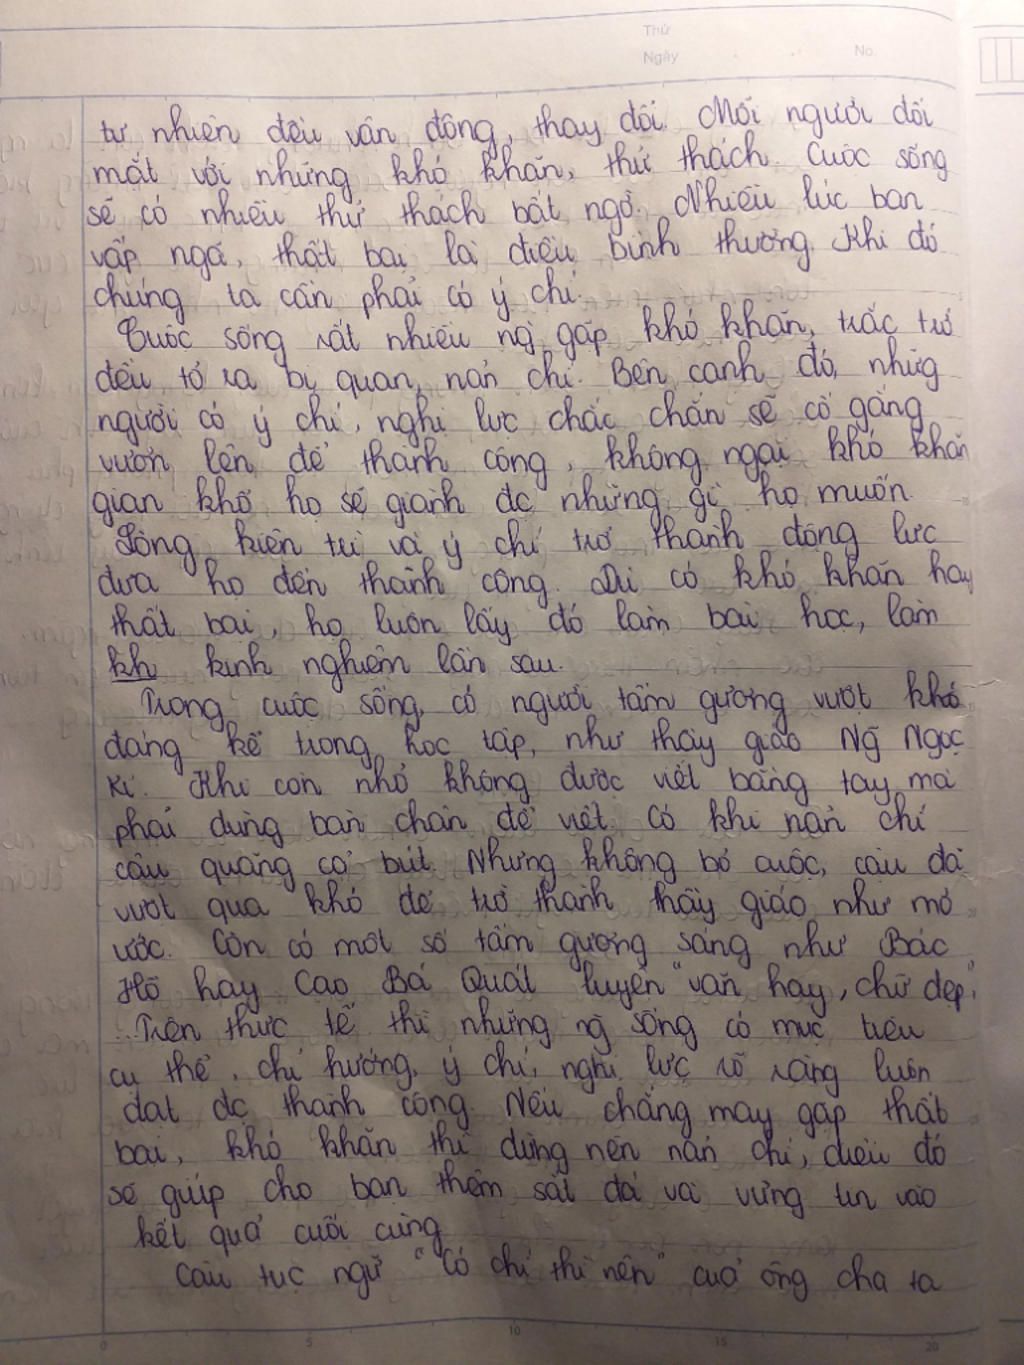 Thứ
Ngày No.
tự nhiên đều vận động, thay đổi. Mỗi người đối
mặt với những khó khăn, thử thách. Cuộc sống
sẽ có nhiều thử thách bất ngờ. Nhiều lúc bạn
vấp ngã, thất bại là điều bình thường. Khi đó
chúng ta cần phải có ý chí.
Cuộc sống rất nhiều ng gặp khó khăn, trắc trở
đều tỏ ra bi quan, nản chí. Bên cạnh đó, nhữg
người có ý chí, nghị lực chắc chắn sẽ cố gắng
vươn lên để thành công, không ngại khó khăn
gian khổ họ sẽ giành đc những gì họ muốn.
Lòng kiên trì và ý chí trở thành động lực
đưa họ đến thành công. Dù có khó khăn hay
thất bại, họ luôn lấy đó làm bài học, làm
kh kinh nghiệm lần sau.
Trong cuộc sống, có người tấm gương vượt khó
đáng kể trong học tập, như thầy giáo Ng̃ Ngọc
Kí. Khi còn nhỏ không được viết bằng tay mà
phải dùng bàn chân để viết. Có khi nản chí
cậu quăng cả bút. Nhưng không bỏ cuộc, cậu đã
vượt qua khó để trở thành thầy giáo như mơ
ước. Còn có một số tấm gương sáng như Bác
Hồ hay Cao Bá Quát luyện "văn hay, chữ đẹp"
...Trên thực tế thì những ng̀ sống có mục tiêu
cụ thể, chí hướng, ý chí, nghị lực rõ ràng luôn
đạt đc thành công. Nếu chẳng may gặp thất
bại, khó khăn thì đừng nên nản chí, điều đó
sẽ giúp cho bạn thêm sắt đá và vững tin vào
kết quả cuối cùng
Câu tục ngữ "Có chí thì nên" của ông cha ta
0 5 10 15 20